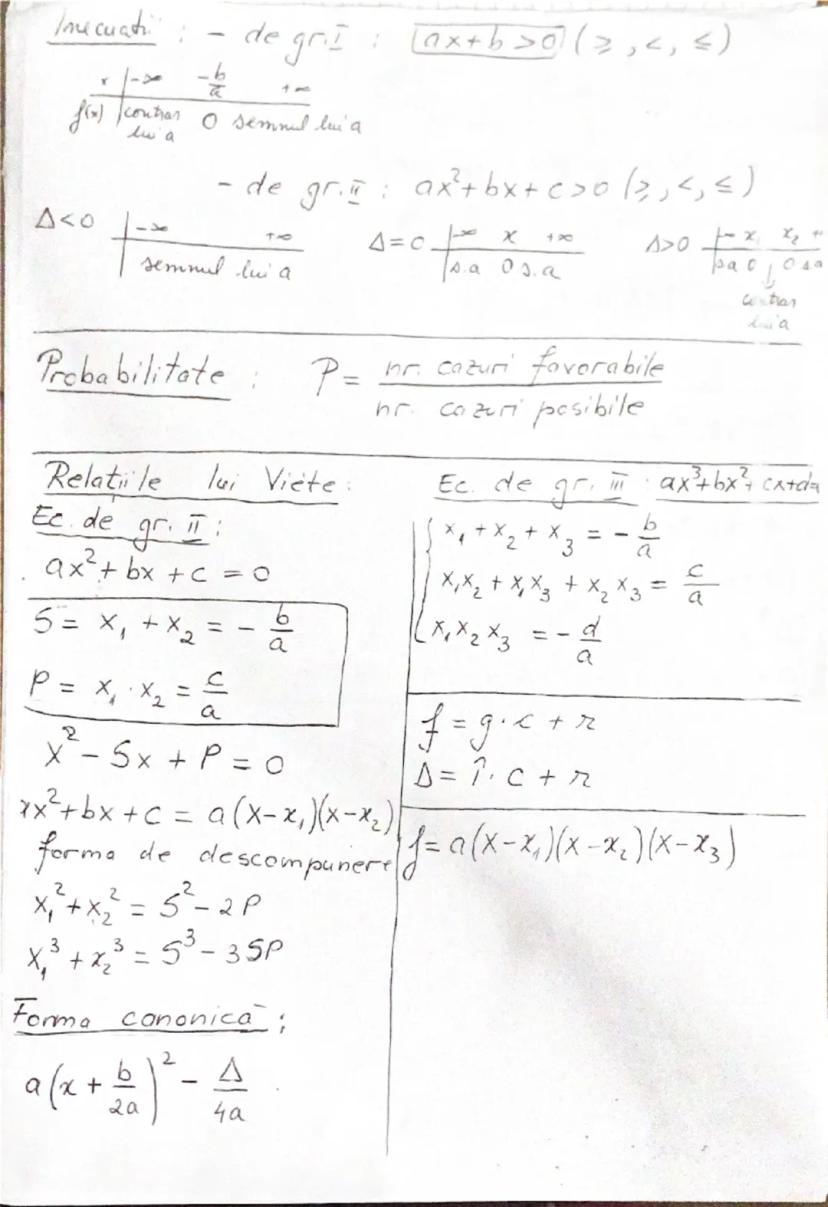 Inecuatii : - de gr. I : ax+b >0 (≥, <, ≤)
x | -∞ -b/a +∞
f(x) | contrar lui a 0 semnul lui a
- de gr. II : ax²+bx+c>0 (≥, <, ≤)
Δ<0 | -∞ +∞
semnul lui a
Δ=0 | -∞ x +∞
s.a 0 s.a
Δ>0 | -∞ x₁ x₂ +
s a 0 ↓ 0 s a
contrar
lui a
Probabilitate : P = nr. cazuri favorabile / nr. cazuri posibile
Relațiile lui Viète :
Ec. de gr. II :
ax² + bx + c = 0
S = x₁ + x₂ = - b/a
P = x₁ · x₂ = c/a
x² - Sx + P = 0
ax²+bx+c = a(x-x₁)(x-x₂)
forma de descompunere
x₁² + x₂² = S² - 2P
x₁³ + x₂³ = S³ - 3SP
Forma canonică :
a(x + b/2a)² - Δ/4a
Ec. de gr. III ax³+bx²+cx+d=
x₁ + x₂ + x₃ = - b/a
x₁x₂ + x₁x₃ + x₂x₃ = c/a
x₁x₂x₃ = - d/a
f = g · c + r
Δ = Î · c + r
f = a(x-x₁)(x-x₂)(x-x₃)